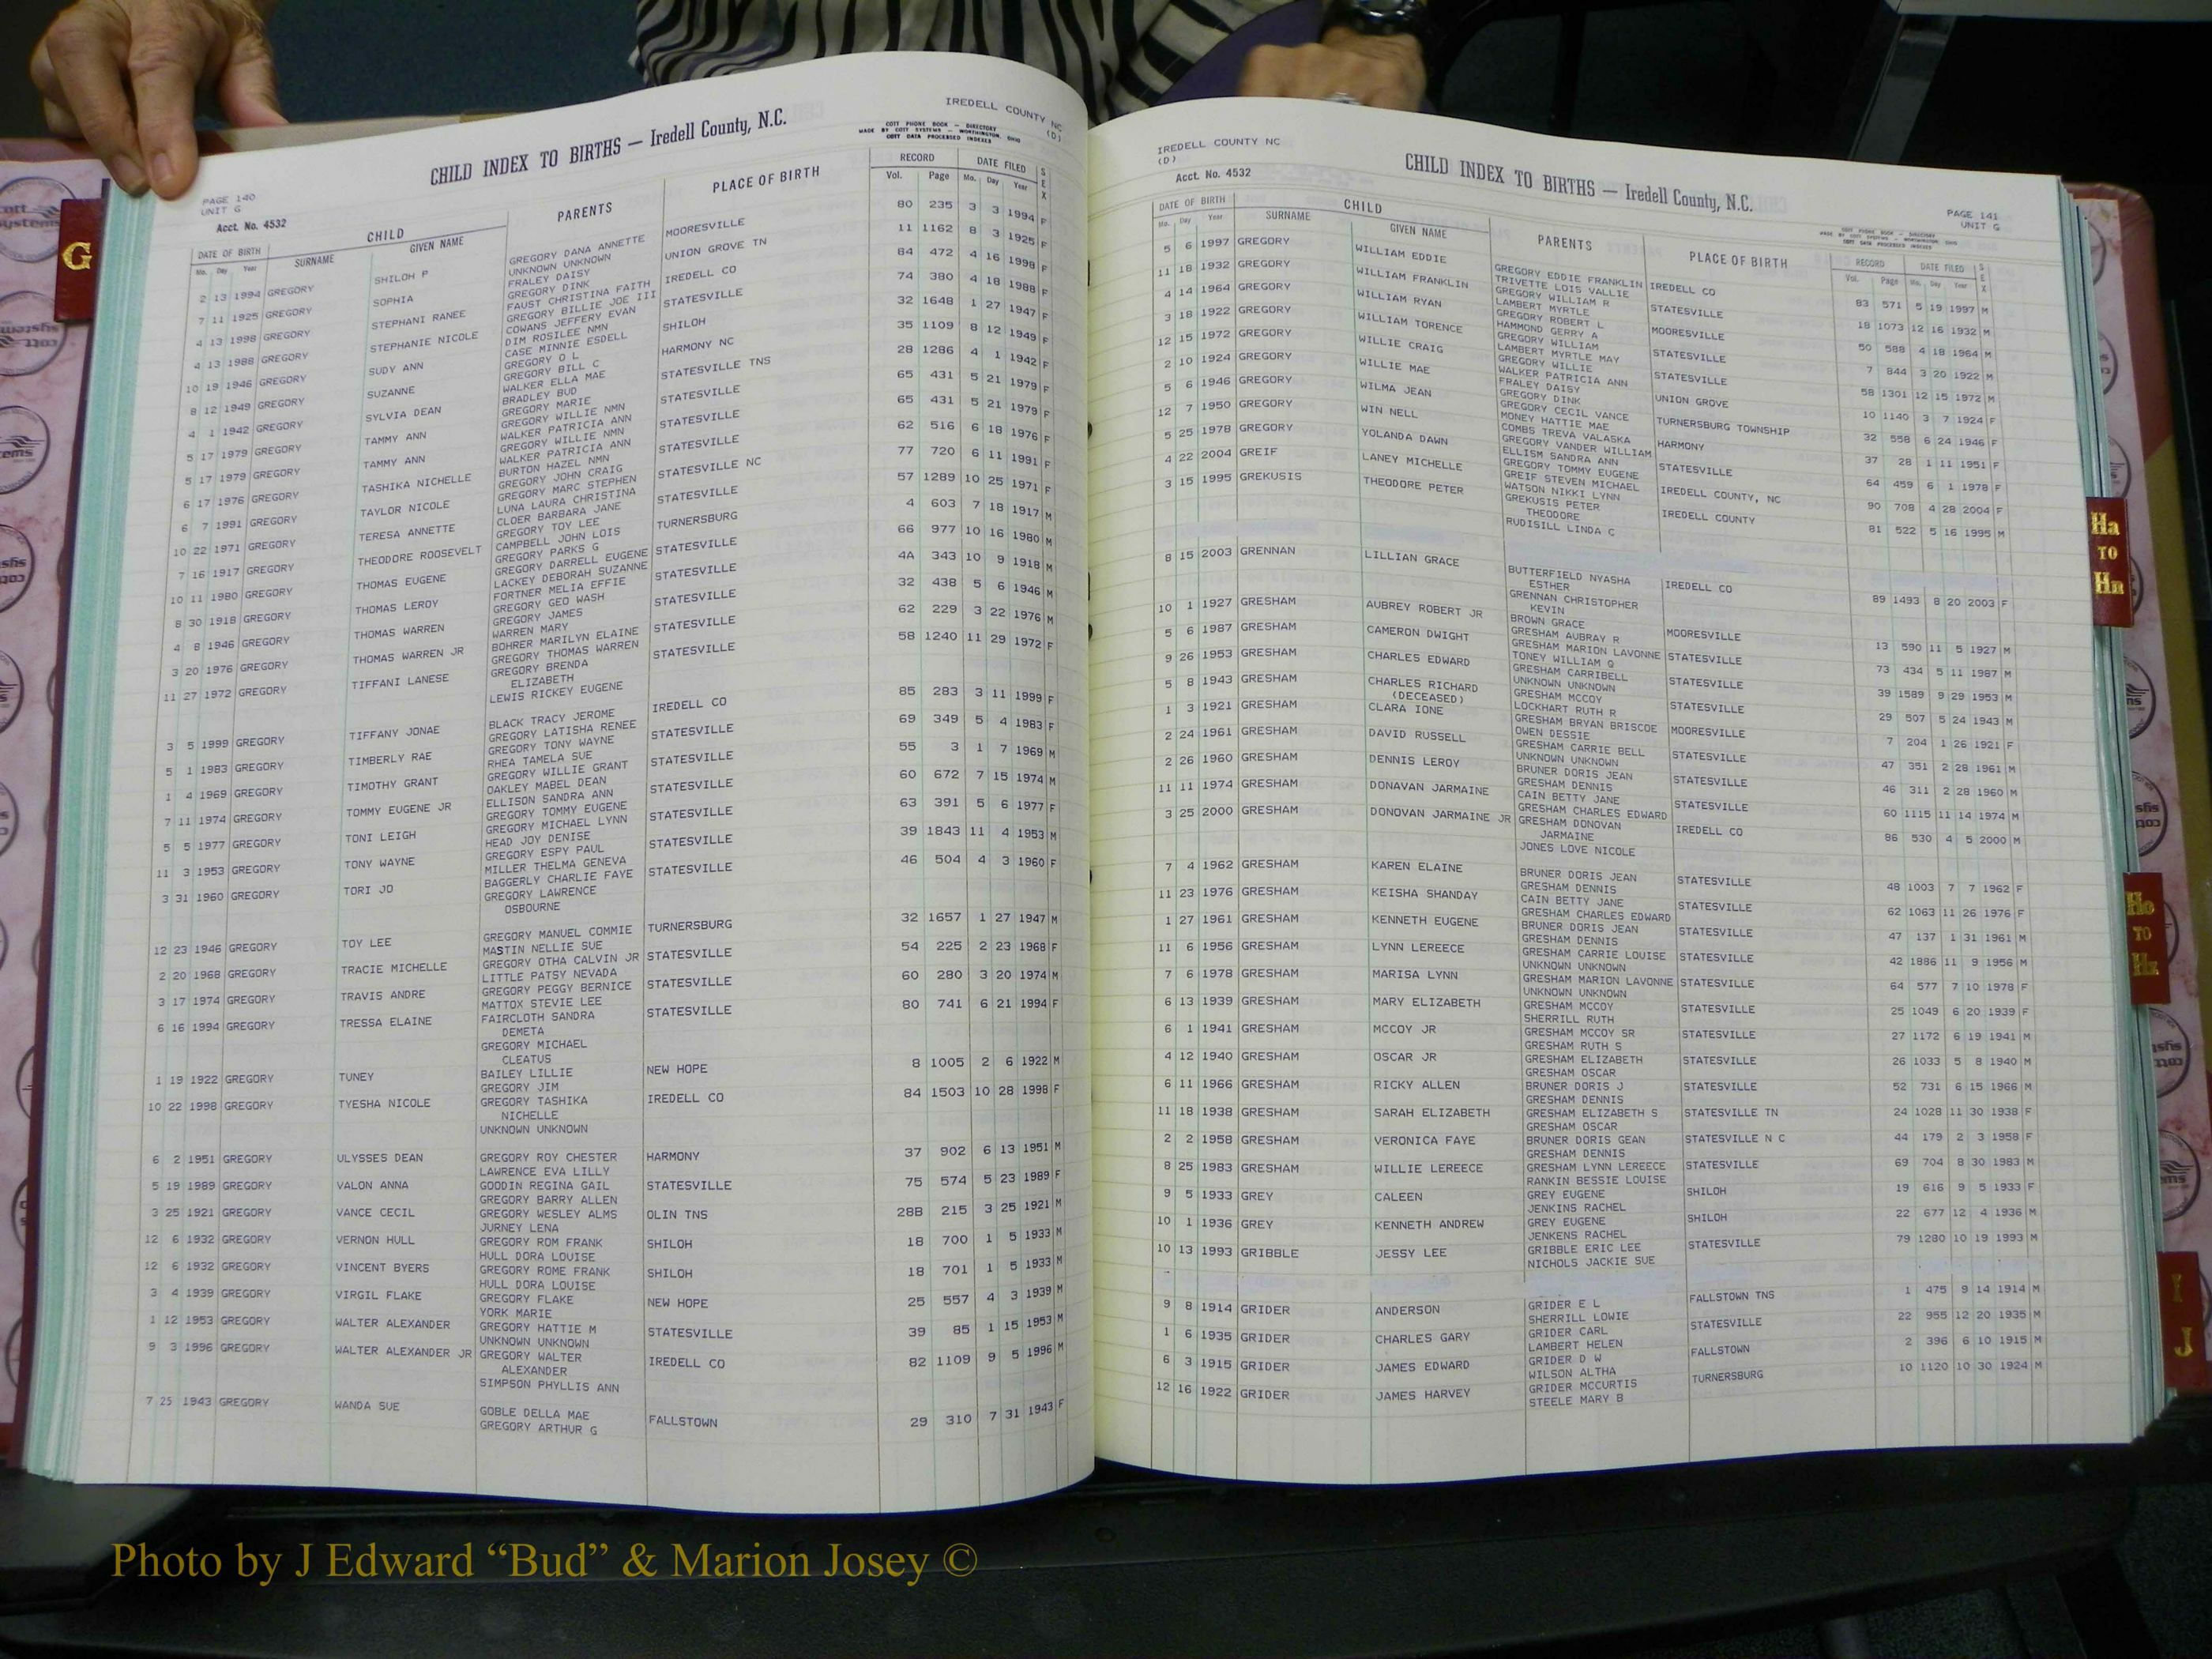 IREDELL COUNTY NC
(D)
CHILD INDEX TO BIRTHS — Iredell County, N.C.
COTT PHONE BOOK — DIRECTORY
MADE BY COTT SYSTEMS — WORTHINGTON, OHIO
COTT DATA PROCESSED INDEXES
PAGE 140
UNIT G
Acct. No. 4532
DATE OF BIRTH CHILD PARENTS PLACE OF BIRTH RECORD DATE FILED SEX
Mo. Day Year SURNAME GIVEN NAME Vol. Page Mo. Day Year
2 13 1994 GREGORY SHILOH P GREGORY DANA ANNETTE MOORESVILLE 80 235 3 3 1994 F
UNKNOWN UNKNOWN
7 11 1925 GREGORY SOPHIA FRALEY DAISY UNION GROVE TN 11 1162 8 3 1925 F
GREGORY DINK
4 13 1998 GREGORY STEPHANI RANEE FAUST CHRISTINA FAITH IREDELL CO 84 472 4 16 1998 F
GREGORY BILLIE JOE III
4 13 1988 GREGORY STEPHANIE NICOLE COWANS JEFFERY EVAN STATESVILLE 74 380 4 18 1988 F
DIM ROSILEE NMN
10 19 1946 GREGORY SUDY ANN CASE MINNIE ESDELL SHILOH 32 1648 1 27 1947 F
GREGORY O L
8 12 1949 GREGORY SUZANNE GREGORY BILL C HARMONY NC 35 1109 8 12 1949 F
WALKER ELLA MAE
4 1 1942 GREGORY SYLVIA DEAN BRADLEY BUD STATESVILLE TNS 28 1286 4 1 1942 F
GREGORY MARIE
5 17 1979 GREGORY TAMMY ANN GREGORY WILLIE NMN STATESVILLE 65 431 5 21 1979 F
WALKER PATRICIA ANN
5 17 1979 GREGORY TAMMY ANN GREGORY WILLIE NMN STATESVILLE 65 431 5 21 1979 F
WALKER PATRICIA ANN
6 17 1976 GREGORY TASHIKA NICHELLE BURTON HAZEL NMN STATESVILLE 62 516 6 18 1976 F
GREGORY JOHN CRAIG
6 7 1991 GREGORY TAYLOR NICOLE GREGORY MARC STEPHEN STATESVILLE 77 720 6 11 1991 F
LUNA LAURA CHRISTINA
10 22 1971 GREGORY TERESA ANNETTE CLOER BARBARA JANE STATESVILLE NC 57 1289 10 25 1971 F
GREGORY TOY LEE
7 16 1917 GREGORY THEODORE ROOSEVELT CAMPBELL JOHN LOIS STATESVILLE 4 603 7 18 1917 M
GREGORY PARKS G
10 11 1980 GREGORY THOMAS EUGENE GREGORY DARRELL EUGENE TURNERSBURG 66 977 10 16 1980 M
LACKEY DEBORAH SUZANNE
8 30 1918 GREGORY THOMAS LEROY FORTNER MELIA EFFIE STATESVILLE 4A 343 10 9 1918 M
GREGORY GEO WASH
4 8 1946 GREGORY THOMAS WARREN GREGORY JAMES STATESVILLE 32 438 5 6 1946 M
WARREN MARY
3 20 1976 GREGORY THOMAS WARREN JR BOHRER MARILYN ELAINE STATESVILLE 62 229 3 22 1976 M
GREGORY THOMAS WARREN
11 27 1972 GREGORY TIFFANI LANESE GREGORY BRENDA STATESVILLE 58 1240 11 29 1972 F
ELIZABETH
LEWIS RICKEY EUGENE STATESVILLE
3 5 1999 GREGORY TIFFANY JONAE BLACK TRACY JEROME IREDELL CO 85 283 3 11 1999 F
GREGORY LATISHA RENEE
5 1 1983 GREGORY TIMBERLY RAE GREGORY TONY WAYNE STATESVILLE 69 349 5 4 1983 F
RHEA TAMELA SUE
1 4 1969 GREGORY TIMOTHY GRANT GREGORY WILLIE GRANT STATESVILLE 55 3 1 7 1969 M
OAKLEY MABEL DEAN
7 11 1974 GREGORY TOMMY EUGENE JR ELLISON SANDRA ANN STATESVILLE 60 672 7 15 1974 M
GREGORY TOMMY EUGENE
5 5 1977 GREGORY TONI LEIGH GREGORY MICHAEL LYNN STATESVILLE 63 391 5 6 1977 F
HEAD JOY DENISE
11 3 1953 GREGORY TONY WAYNE GREGORY ESPY PAUL STATESVILLE 39 1843 11 4 1953 M
MILLER THELMA GENEVA
3 31 1960 GREGORY TORI JO BAGGERLY CHARLIE FAYE STATESVILLE 46 504 4 3 1960 F
GREGORY LAWRENCE
OSBOURNE
12 23 1946 GREGORY TOY LEE GREGORY MANUEL COMMIE TURNERSBURG 32 1657 1 27 1947 M
MASTIN NELLIE SUE
2 20 1968 GREGORY TRACIE MICHELLE GREGORY OTHA CALVIN JR STATESVILLE 54 225 2 23 1968 F
LITTLE PATSY NEVADA
3 17 1974 GREGORY TRAVIS ANDRE GREGORY PEGGY BERNICE STATESVILLE 60 280 3 20 1974 M
MATTOX STEVIE LEE
6 16 1994 GREGORY TRESSA ELAINE FAIRCLOTH SANDRA STATESVILLE 80 741 6 21 1994 F
DEMETA
GREGORY MICHAEL
CLEATUS
1 19 1922 GREGORY TUNEY BAILEY LILLIE NEW HOPE 8 1005 2 6 1922 M
GREGORY JIM
10 22 1998 GREGORY TYESHA NICOLE GREGORY TASHIKA IREDELL CO 84 1503 10 28 1998 F
NICHELLE
UNKNOWN UNKNOWN
6 2 1951 GREGORY ULYSSES DEAN GREGORY ROY CHESTER HARMONY 37 902 6 13 1951 M
LAWRENCE EVA LILLY
5 19 1989 GREGORY VALON ANNA GOODIN REGINA GAIL STATESVILLE 75 574 5 23 1989 F
GREGORY BARRY ALLEN
3 25 1921 GREGORY VANCE CECIL GREGORY WESLEY ALMS OLIN TNS 28B 215 3 25 1921 M
JURNEY LENA
12 6 1932 GREGORY VERNON HULL GREGORY ROM FRANK SHILOH 18 700 1 5 1933 M
HULL DORA LOUISE
12 6 1932 GREGORY VINCENT BYERS GREGORY ROME FRANK SHILOH 18 701 1 5 1933 M
HULL DORA LOUISE
3 4 1939 GREGORY VIRGIL FLAKE GREGORY FLAKE NEW HOPE 25 557 4 3 1939 M
YORK MARIE
1 12 1953 GREGORY WALTER ALEXANDER GREGORY HATTIE M STATESVILLE 39 85 1 15 1953 M
UNKNOWN UNKNOWN
9 3 1996 GREGORY WALTER ALEXANDER JR GREGORY WALTER IREDELL CO 82 1109 9 5 1996 M
ALEXANDER
SIMPSON PHYLLIS ANN
7 25 1943 GREGORY WANDA SUE GOBLE DELLA MAE FALLSTOWN 29 310 7 31 1943 F
GREGORY ARTHUR G
IREDELL COUNTY NC
(D)
Acct. No. 4532
CHILD INDEX TO BIRTHS — Iredell County, N.C.
PAGE 141
UNIT G
COTT PHONE BOOK — DIRECTORY
MADE BY COTT SYSTEMS — WORTHINGTON, OHIO
COTT DATA PROCESSED INDEXES
DATE OF BIRTH CHILD PARENTS PLACE OF BIRTH RECORD DATE FILED SEX
Mo. Day Year SURNAME GIVEN NAME Vol. Page Mo. Day Year
5 6 1997 GREGORY WILLIAM EDDIE GREGORY EDDIE FRANKLIN IREDELL CO 83 571 5 19 1997 M
TRIVETTE LOIS VALLIE
11 18 1932 GREGORY WILLIAM FRANKLIN GREGORY WILLIAM R STATESVILLE 18 1073 12 16 1932 M
LAMBERT MYRTLE
4 14 1964 GREGORY WILLIAM RYAN GREGORY ROBERT L MOORESVILLE 50 588 4 18 1964 M
HAMMOND GERRY A
3 18 1922 GREGORY WILLIAM TORENCE GREGORY WILLIAM STATESVILLE 7 844 3 20 1922 M
LAMBERT MYRTLE MAY
12 15 1972 GREGORY WILLIE CRAIG GREGORY WILLIE STATESVILLE 58 1301 12 15 1972 M
WALKER PATRICIA ANN
2 10 1924 GREGORY WILLIE MAE FRALEY DAISY UNION GROVE 10 1140 3 7 1924 F
GREGORY DINK
5 6 1946 GREGORY WILMA JEAN GREGORY CECIL VANCE TURNERSBURG TOWNSHIP 32 558 6 24 1946 F
MONEY HATTIE MAE
12 7 1950 GREGORY WIN NELL COMBS TREVA VALASKA HARMONY 37 28 1 11 1951 F
GREGORY VANDER WILLIAM
5 25 1978 GREGORY YOLANDA DAWN ELLISM SANDRA ANN STATESVILLE 64 459 6 1 1978 F
GREGORY TOMMY EUGENE
4 22 2004 GREIF LANEY MICHELLE GREIF STEVEN MICHAEL IREDELL COUNTY, NC 90 708 4 28 2004 F
WATSON NIKKI LYNN
3 15 1995 GREKUSIS THEODORE PETER GREKUSIS PETER IREDELL COUNTY 81 522 5 16 1995 M
THEODORE
RUDISILL LINDA C
8 15 2003 GRENNAN LILLIAN GRACE BUTTERFIELD NYASHA IREDELL CO 89 1493 8 20 2003 F
ESTHER
GRENNAN CHRISTOPHER
KEVIN
10 1 1927 GRESHAM AUBREY ROBERT JR BROWN GRACE MOORESVILLE 13 590 11 5 1927 M
GRESHAM AUBRAY R
5 6 1987 GRESHAM CAMERON DWIGHT GRESHAM MARION LAVONNE STATESVILLE 73 434 5 11 1987 M
TONEY WILLIAM Q
9 26 1953 GRESHAM CHARLES EDWARD GRESHAM CARRIBELL STATESVILLE 39 1589 9 29 1953 M
UNKNOWN UNKNOWN
5 8 1943 GRESHAM CHARLES RICHARD GRESHAM MCCOY STATESVILLE 29 507 5 24 1943 M
(DECEASED) LOCKHART RUTH R
1 3 1921 GRESHAM CLARA IONE GRESHAM BRYAN BRISCOE MOORESVILLE 7 204 1 26 1921 F
OWEN DESSIE
2 24 1961 GRESHAM DAVID RUSSELL GRESHAM CARRIE BELL STATESVILLE 47 351 2 28 1961 M
UNKNOWN UNKNOWN
2 26 1960 GRESHAM DENNIS LEROY BRUNER DORIS JEAN STATESVILLE 46 311 2 28 1960 M
GRESHAM DENNIS
11 11 1974 GRESHAM DONAVAN JARMAINE CAIN BETTY JANE STATESVILLE 60 1115 11 14 1974 M
GRESHAM CHARLES EDWARD
3 25 2000 GRESHAM DONOVAN JARMAINE JR GRESHAM DONOVAN IREDELL CO 86 530 4 5 2000 M
JARMAINE
JONES LOVE NICOLE
7 4 1962 GRESHAM KAREN ELAINE BRUNER DORIS JEAN STATESVILLE 48 1003 7 7 1962 F
GRESHAM DENNIS
11 23 1976 GRESHAM KEISHA SHANDAY CAIN BETTY JANE STATESVILLE 62 1063 11 26 1976 F
GRESHAM CHARLES EDWARD
1 27 1961 GRESHAM KENNETH EUGENE BRUNER DORIS JEAN STATESVILLE 47 137 1 31 1961 M
GRESHAM DENNIS
11 6 1956 GRESHAM LYNN LEREECE GRESHAM CARRIE LOUISE STATESVILLE 42 1886 11 9 1956 M
UNKNOWN UNKNOWN
7 6 1978 GRESHAM MARISA LYNN GRESHAM MARION LAVONNE STATESVILLE 64 577 7 10 1978 F
UNKNOWN UNKNOWN
6 13 1939 GRESHAM MARY ELIZABETH GRESHAM MCCOY STATESVILLE 25 1049 6 20 1939 F
SHERRILL RUTH
6 1 1941 GRESHAM MCCOY JR GRESHAM MCCOY SR STATESVILLE 27 1172 6 19 1941 M
GRESHAM RUTH S
4 12 1940 GRESHAM OSCAR JR GRESHAM ELIZABETH STATESVILLE 26 1033 5 8 1940 M
GRESHAM OSCAR
6 11 1966 GRESHAM RICKY ALLEN BRUNER DORIS J STATESVILLE 52 731 6 15 1966 M
GRESHAM DENNIS
11 18 1938 GRESHAM SARAH ELIZABETH GRESHAM ELIZABETH S STATESVILLE TN 24 1028 11 30 1938 F
GRESHAM OSCAR
2 2 1958 GRESHAM VERONICA FAYE BRUNER DORIS GEAN STATESVILLE N C 44 179 2 3 1958 F
GRESHAM DENNIS
8 25 1983 GRESHAM WILLIE LEREECE GRESHAM LYNN LEREECE STATESVILLE 69 704 8 30 1983 M
RANKIN BESSIE LOUISE
9 5 1933 GREY CALEEN GREY EUGENE SHILOH 19 616 9 5 1933 F
JENKINS RACHEL
10 1 1936 GREY KENNETH ANDREW GREY EUGENE SHILOH 22 677 12 4 1936 M
JENKENS RACHEL
10 13 1993 GRIBBLE JESSY LEE GRIBBLE ERIC LEE STATESVILLE 79 1280 10 19 1993 M
NICHOLS JACKIE SUE
9 8 1914 GRIDER ANDERSON GRIDER E L FALLSTOWN TNS 1 475 9 14 1914 M
SHERRILL LOWIE
1 6 1935 GRIDER CHARLES GARY GRIDER CARL STATESVILLE 22 955 12 20 1935 M
LAMBERT HELEN
6 3 1915 GRIDER JAMES EDWARD GRIDER D W FALLSTOWN 2 396 6 10 1915 M
WILSON ALTHA
12 16 1922 GRIDER JAMES HARVEY GRIDER MCCURTIS TURNERSBURG 10 1120 10 30 1924 M
STEELE MARY B
G
Ha
TO
Hn
Ho
TO
Hz
I
J
Photo by J Edward “Bud” & Marion Josey ©